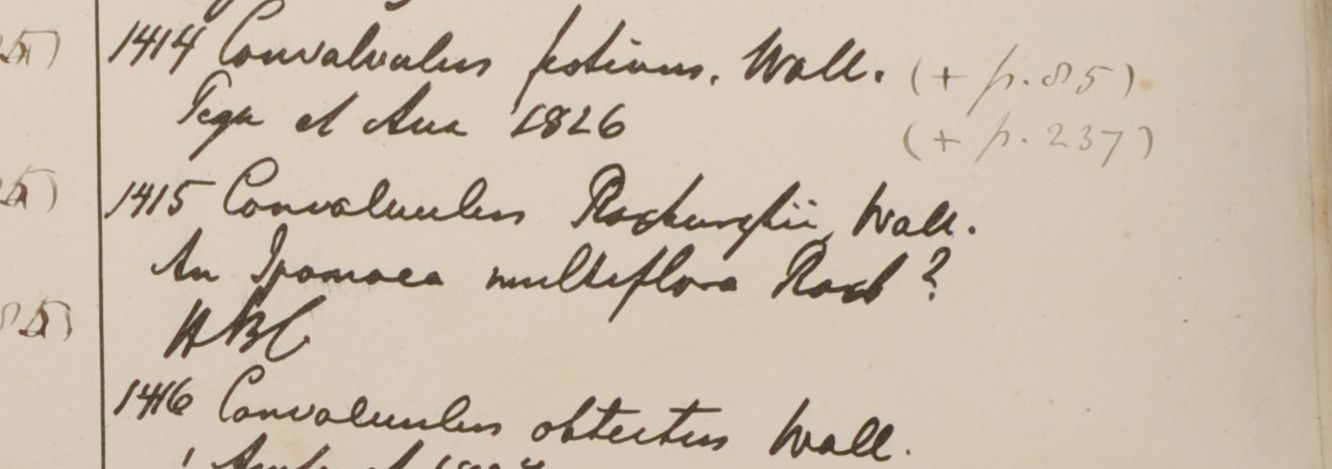 1414 Convalvulus festivus. Wall. (+ p. 85)
Pegu et Ava 1826 (+ p. 237)
1415 Convalvulus Roxburghii, Wall.
An Ipomoea multiflora Roxb ?
HBC
1416 Convalvulus obtectus Wall.